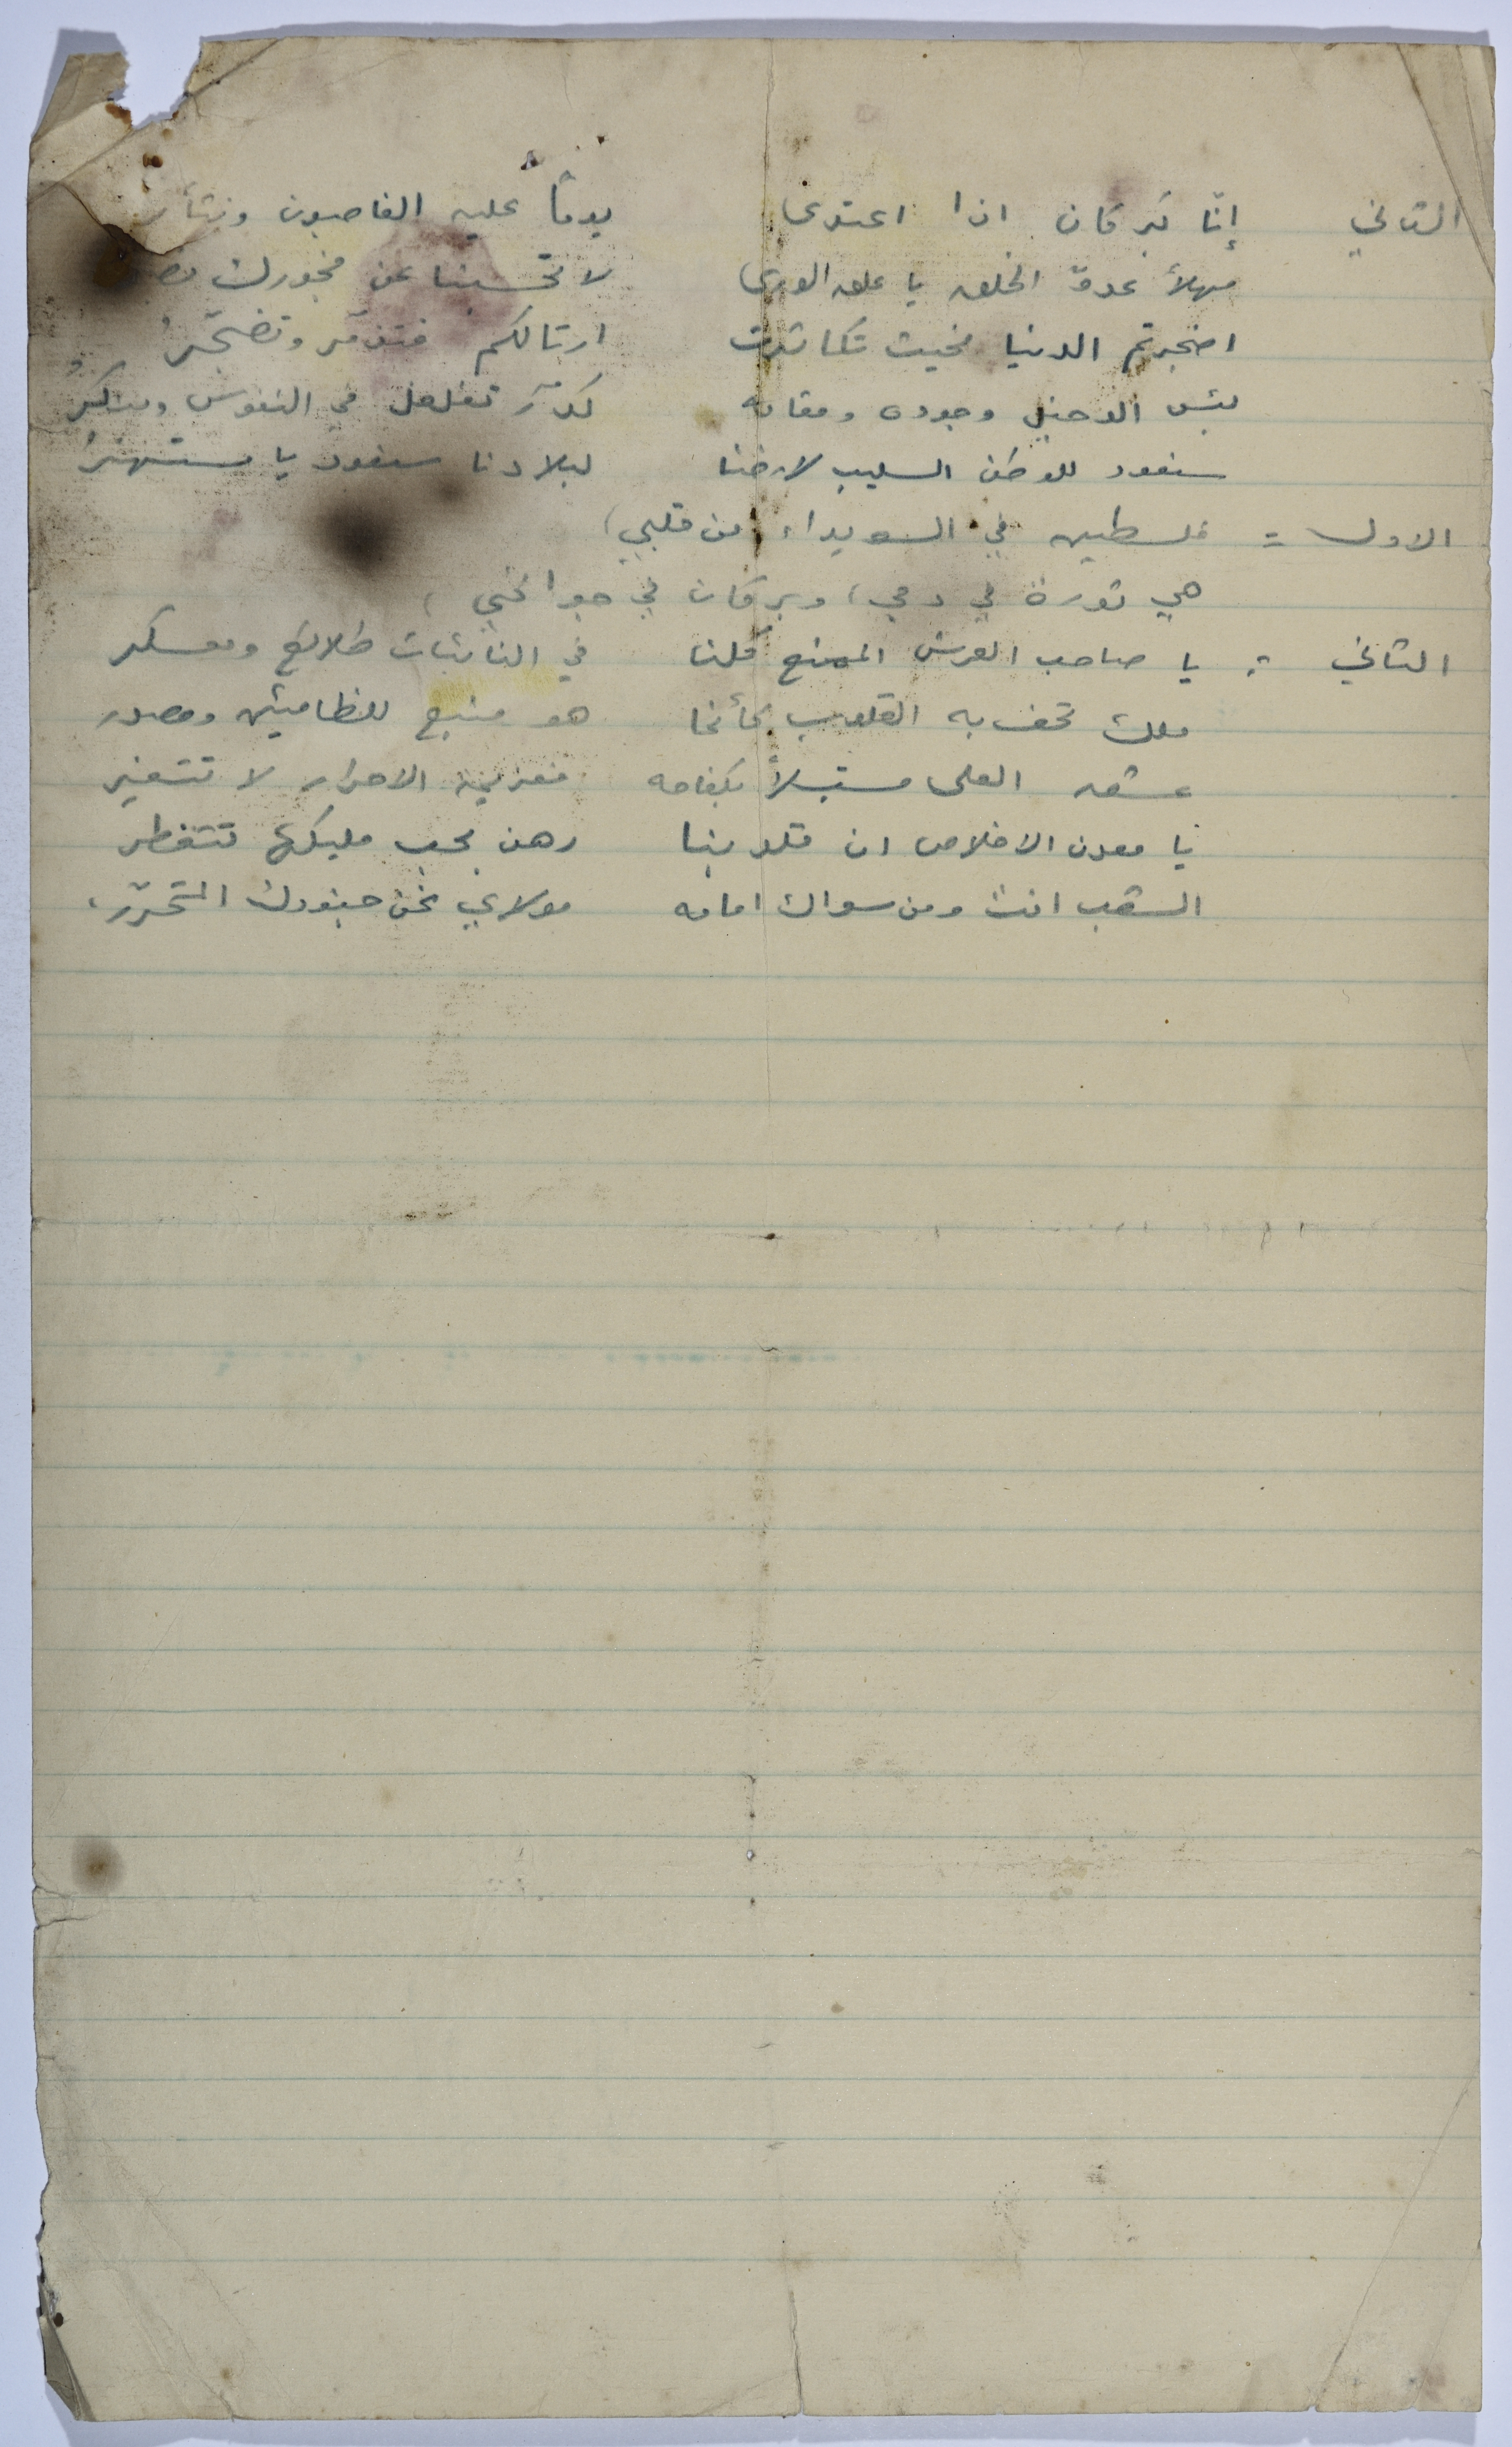 الثاني إنّا لبركان اذا اعتدى يوماً عليه الغاصبون ونثأر
مهلاً عدوّ الخلق يا علق الورى لا تحسبنا عن فجورك
اضجرتم الدنيا بحيث تكاثرت ارتالكم فتذمّر وتضجّرُ
بئس الدخيل وجوده ومقامه كدرٌ تغلغل في النفوس
سنعود للوطن السليب لارضنا لبلادنا سنعود يا مستهترُ
الاول = فلسطين في السويداء (من قلبي)
هي ثورة في دمي، وبركان في جوانحي،
الثاني : يا صاحب العرش الممنع كلنا في النائبات طلائع ومعسكر
ملك تحف به القلوب كأنما هو منبع للظامئين ومصدر
عشق العلى مستبسلاً بكفاحه فعزيمة الاحرار لا تتغير
يا معدن الاخلاص ان قلوبنا رهن بحب مليكها تتفطر
الشعب انت ومن سواك امامه مولاي نحن جنودك